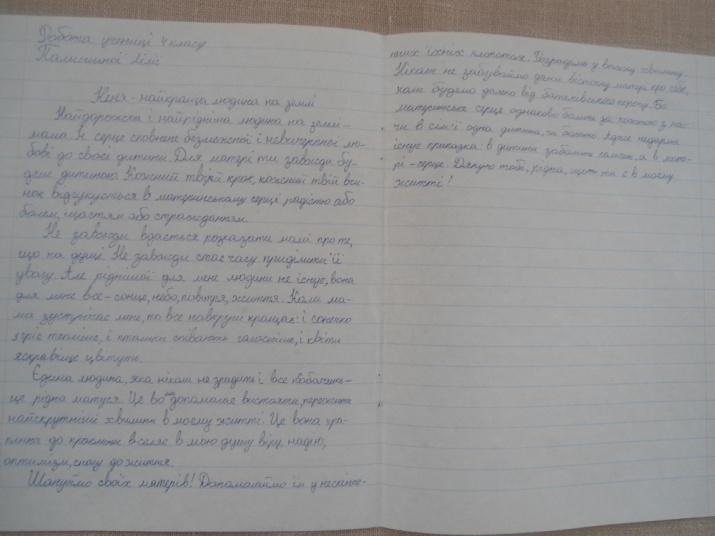 Робота учениці 4 класу
Палишиної Лілі
Неня - найкраща людина на землі
Найдорожча і найрідніша людина на землі -
мама. Її серце сповнене безмежної і невичерпної лю-
бові до своєї дитини. Для матері ти завжди бу-
деш дитиною. Кожний твій крок, кожний твій вчи-
нок відгукується в материнському серці радістю або
болем, щастям або стражданням.
Не завжди вдається розказати мамі про те,
що на душі. Не завжди стає часу приділити їй
увагу. Але ріднішої для мене людини не існує, вона
для мене все - сонце, небо, повітря, життя. Коли ма-
ма зустрічає мене, то все навкруги краще: і сонечко
гріє тепліше, і пташки співають голосніше, і квіти
яскравіше цвітуть.
Єдина людина, яка ніколи не зрадить і все пробачить -
це рідна матуся. Це вона допомагає вистояти, пережити
найскрутніші хвилини в моєму житті. Це вона
до вселяє в мою душу віру, надію,
оптимізм, снагу до життя.
Шануймо своїх матерів! Допомагаймо їм у нескінче-
нних їхніх клопотах. Розрадьмо у важку хвилину.
Ніколи не забуваймо давати вісточку матері про себе,
коли будемо далеко від батьківського порогу. Бо
материнське серце однаково болить за кожного з нас,
чи в сім'ї одна дитина, чи багато. Адже недарма
існує приказка: в дитини заболить пальчик, а в мате-
рі - серце. Дякую тобі, рідна, що ти є в моєму
житті!